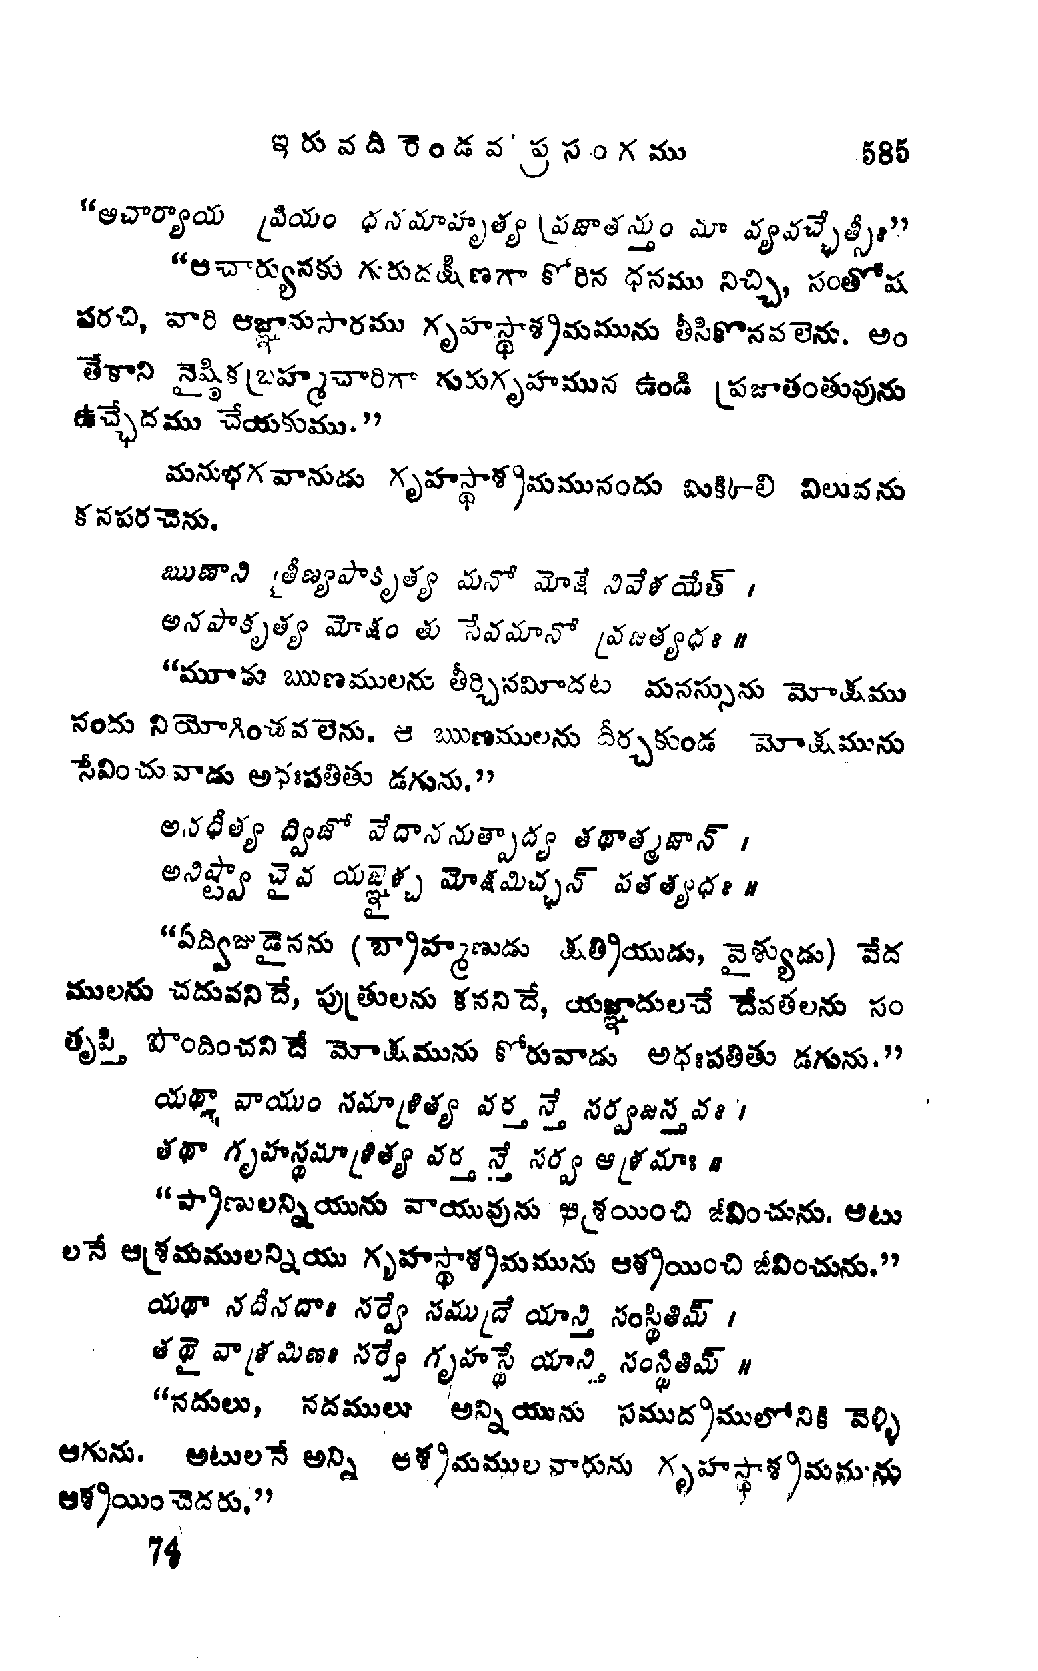 ఇరువదిరెండవ ప్రసంగము 585
“ఆచార్యాయ ప్రియం ధనమాహృత్య ప్రజాతన్తుం మా వ్యవచ్ఛేత్సీః”
“ఆచార్యునకు గురుదక్షిణగా కోరిన ధనము నిచ్చి, సంతోష
పరచి, వారి ఆజ్ఞానుసారము గృహస్థాశ్రమమును తీసికొనవలెను. అం
తేకాని నైష్ఠికబ్రహ్మచారిగా గురుగృహమున ఉండి ప్రజాతంతువును
ఉచ్ఛేదము చేయకుము.”
మనుభగవానుడు గృహస్థాశ్రమమునందు మికిలి విలువను
కనపరచెను.
ఋణాని త్రీణ్యపాకృత్య మనో మోక్షే నివేశయేత్ ।
అనపాకృత్య మోక్షం తు సేవమానో వ్రజత్యధః ॥
“మూడు ఋణములను తీర్చినమీదట మనస్సును మోక్షము
నందు నియోగించవలెను. ఆ ఋణములను దీర్చకుండ మోక్షమును
సేవించువాడు అధఃపతితు డగును.”
అనధీత్య ద్విజో వేదాననుత్పాద్య తథాత్మజాన్ ।
అనిష్ట్వా చైవ యజ్ఞైశ్చ మోక్షమిచ్ఛన్ పతత్యధః ॥
“ఏద్విజుడైనను (బ్రాహ్మణుడు క్షత్రియుడు, వైశ్యుడు) వేద
ములను చదువనిదే, పుత్రులను కననిదే, యజ్ఞాదులచే దేవతలను సం
తృప్తి పొందించనిదే మోక్షమును కోరువాడు అధఃపతితు డగును.”
యథా వాయుం సమాశ్రిత్య వర్తన్తే సర్వజన్తవః ।
తథా గృహస్థమాశ్రిత్య వర్తన్తే సర్వ ఆశ్రమాః ॥
“ప్రాణులన్నియును వాయువును ఆశ్రయించి జీవించును. అటు
లనే ఆశ్రమములన్నియు గృహస్థాశ్రమమును ఆశ్రయించి జీవించును.”
యథా నదీనదాః సర్వే సముద్రే యాన్తి సంస్థితిమ్ ।
తథైవాశ్రమిణః సర్వే గృహస్థే యాన్తి సంస్థితిమ్ ॥
“నదులు, నదములు అన్నియును సముద్రములోనికి వెళ్ళి
ఆగును. అటులనే అన్ని ఆశ్రమములవారును గృహస్థాశ్రమమును
ఆశ్రయించెదరు.”
74